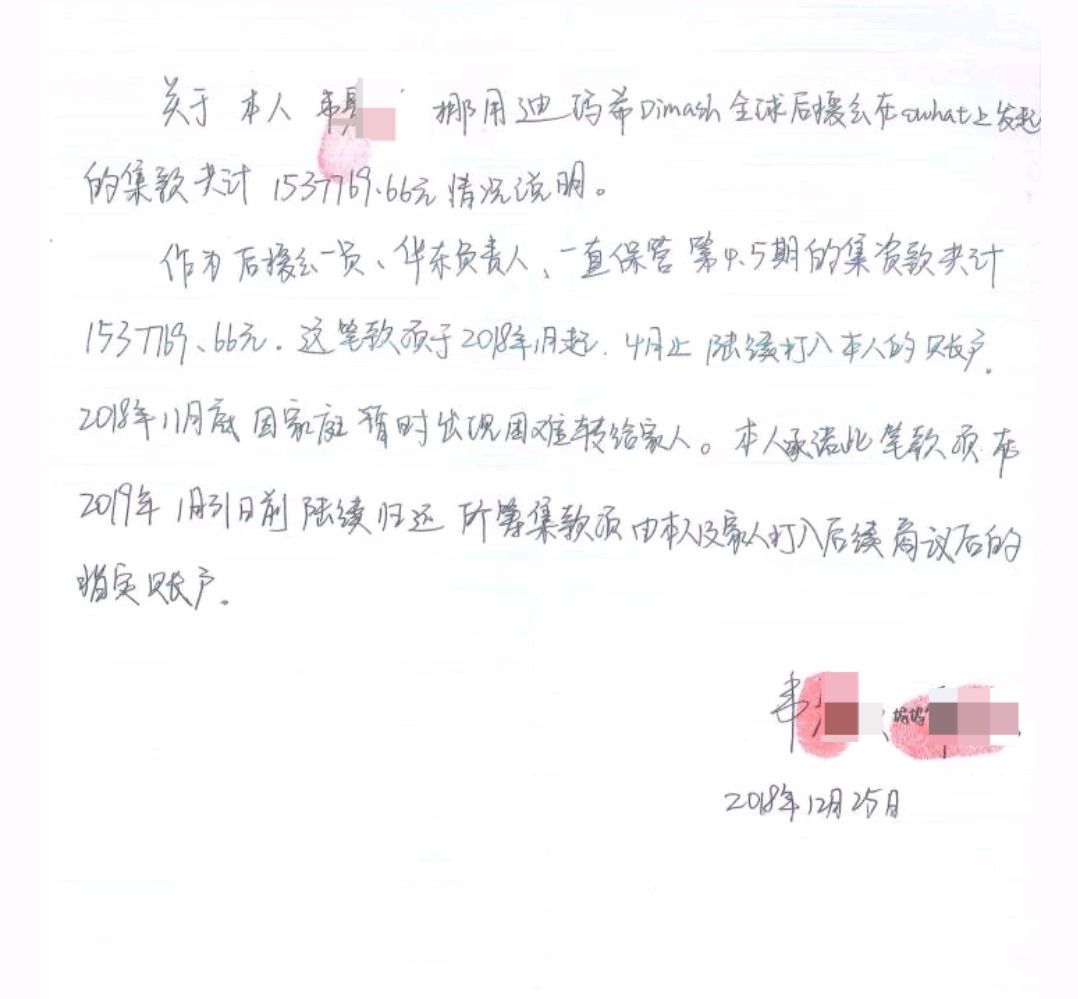 关于 本人 韦 挪用迪玛希Dimash全球后援会在owhat上发起
的集款共计 1537769.66元情况说明。
作为后援会一员、华东负责人、一直保管第4.5期的集资款共计
1537769、66元. 这笔款项于2018年1月起. 4月止 陆续打入本人的账户.
2018年11月底 因家庭暂时出现困难转给家人。本人承诺此笔款项在
2019年1月31日前 陆续归还 所筹集款项由本人及家人打入后续商议后的
指定账户.
韦 、妈妈
2018年12月25日